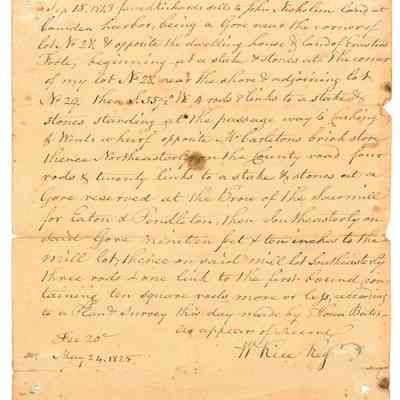 Sep 15. 1813 Jared Richards sells to John Nicholson land at
Camden harbor, being a Gore near the corner of
lot No 28 & opposite the dwelling house & land of
beginning at a stake & stones at the corner
of my lot No 28 near the shore & adjoining lot
No 29. then S. 55 1/2 W 4 rods & links to a stake &
stones standing at the passage way to Cushing
& wharf opposite Mr Carletons brick store
thence Northeasterly on the County road four
rods & twenty links to a stake & stones at a
Gore reserved at the Brow of the Sawmill
for Eaton & Pendleton, then Southeasterly on
said Gore nineteen feet & ten inches to the
mill lot, thence on said mill lot Southeasterly
three rods & one link to the first bound, con-
taining ten square rods more or less, according
to a Plan & Survey this day made by
as appears of Record
Fee 20c
May 24. 1825.
Wm Rice Reg